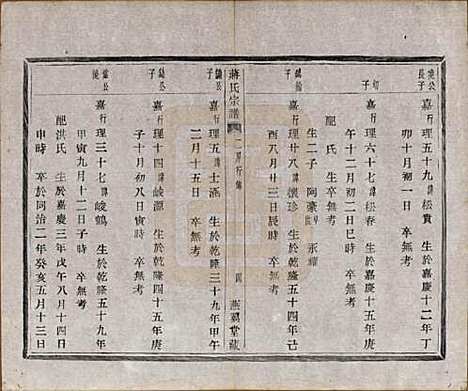 嘉行理五十九諱松貴 生於嘉慶十二年丁
卯十月初一日 卒無考
嘉行理六十七諱松春 生於嘉慶十五年庚
午十二月初二日巳時 卒無考
配 氏 生卒無考
嘉行理廿八諱懷珍 生於乾隆五十四年己
酉八月廿三日辰時 卒無考
生二子 阿豪 永耀
蔣氏宗譜 四 燕翼堂藏
嘉行理五諱士涵 生於乾隆三十九年甲午
二月十五日 卒無考
嘉行理十四諱峻源 生於乾隆四十五年庚
子十月初八日寅時 卒無考
嘉行理三十七諱峻鶴 生於乾隆五十九年
甲寅九月十二日子時 卒無考
配洪氏 生於嘉慶三年戊午八月十四日
申時 卒於同治二年癸亥五月十三日